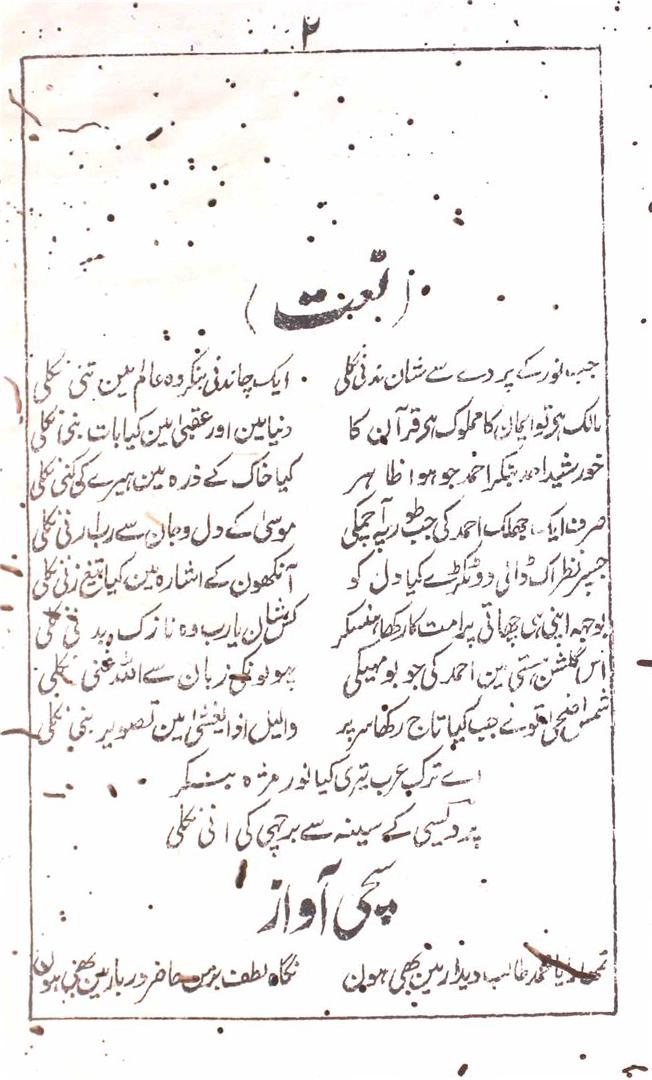 ۲
(نعت)
جب نور کے پردے سے شان مدنی نکلی ایک چاندنی بنکر وہ عالم مین تنی نکلی
مالک ہی تو ایمان کا مملوک ہی قرآن کا دنیا مین اور عقبیٰ مین کیا بات بنی نکلی
خورشید احد بنکر احمد جو ہوا ظاہر کیا خاک کے ذرہ مین ہیرے کی کنی نکلی
صرف ایک جھلک احمد کی جب طور پہ آ چمکی موسیٰ کے دل و جان سے رب ارنی نکلی
جسپر نظر اک ڈالی دو ٹکڑے کیا دل کو آنکھون کے اشارہ مین کیا تیغ زنی نکلی
بوجہہ اپنی ہی چھاتی پر امت کا رکھا ہنسکر کس شان یارب وہ نازک بدنی نکلی
اس گلشن ہستی مین احمد کی جو بو مہیکی پہولونکی زبان سے اللہ غنی نکلی
شمس الضحیٰ تونے جب کیا تاج رکھا سر پر والیل اذا یغشیٰ مین تصویر بنی نکلی
اے ترک عرب تیری کیا نور مژہ بنکر
پردیسی کے سینہ سے برچہی کی انی نکلی
سچی آواز
یا محمد طالب دیدار مین بھی ہون نگاہ لطف برمن حاضر دربار مین بھی ہون